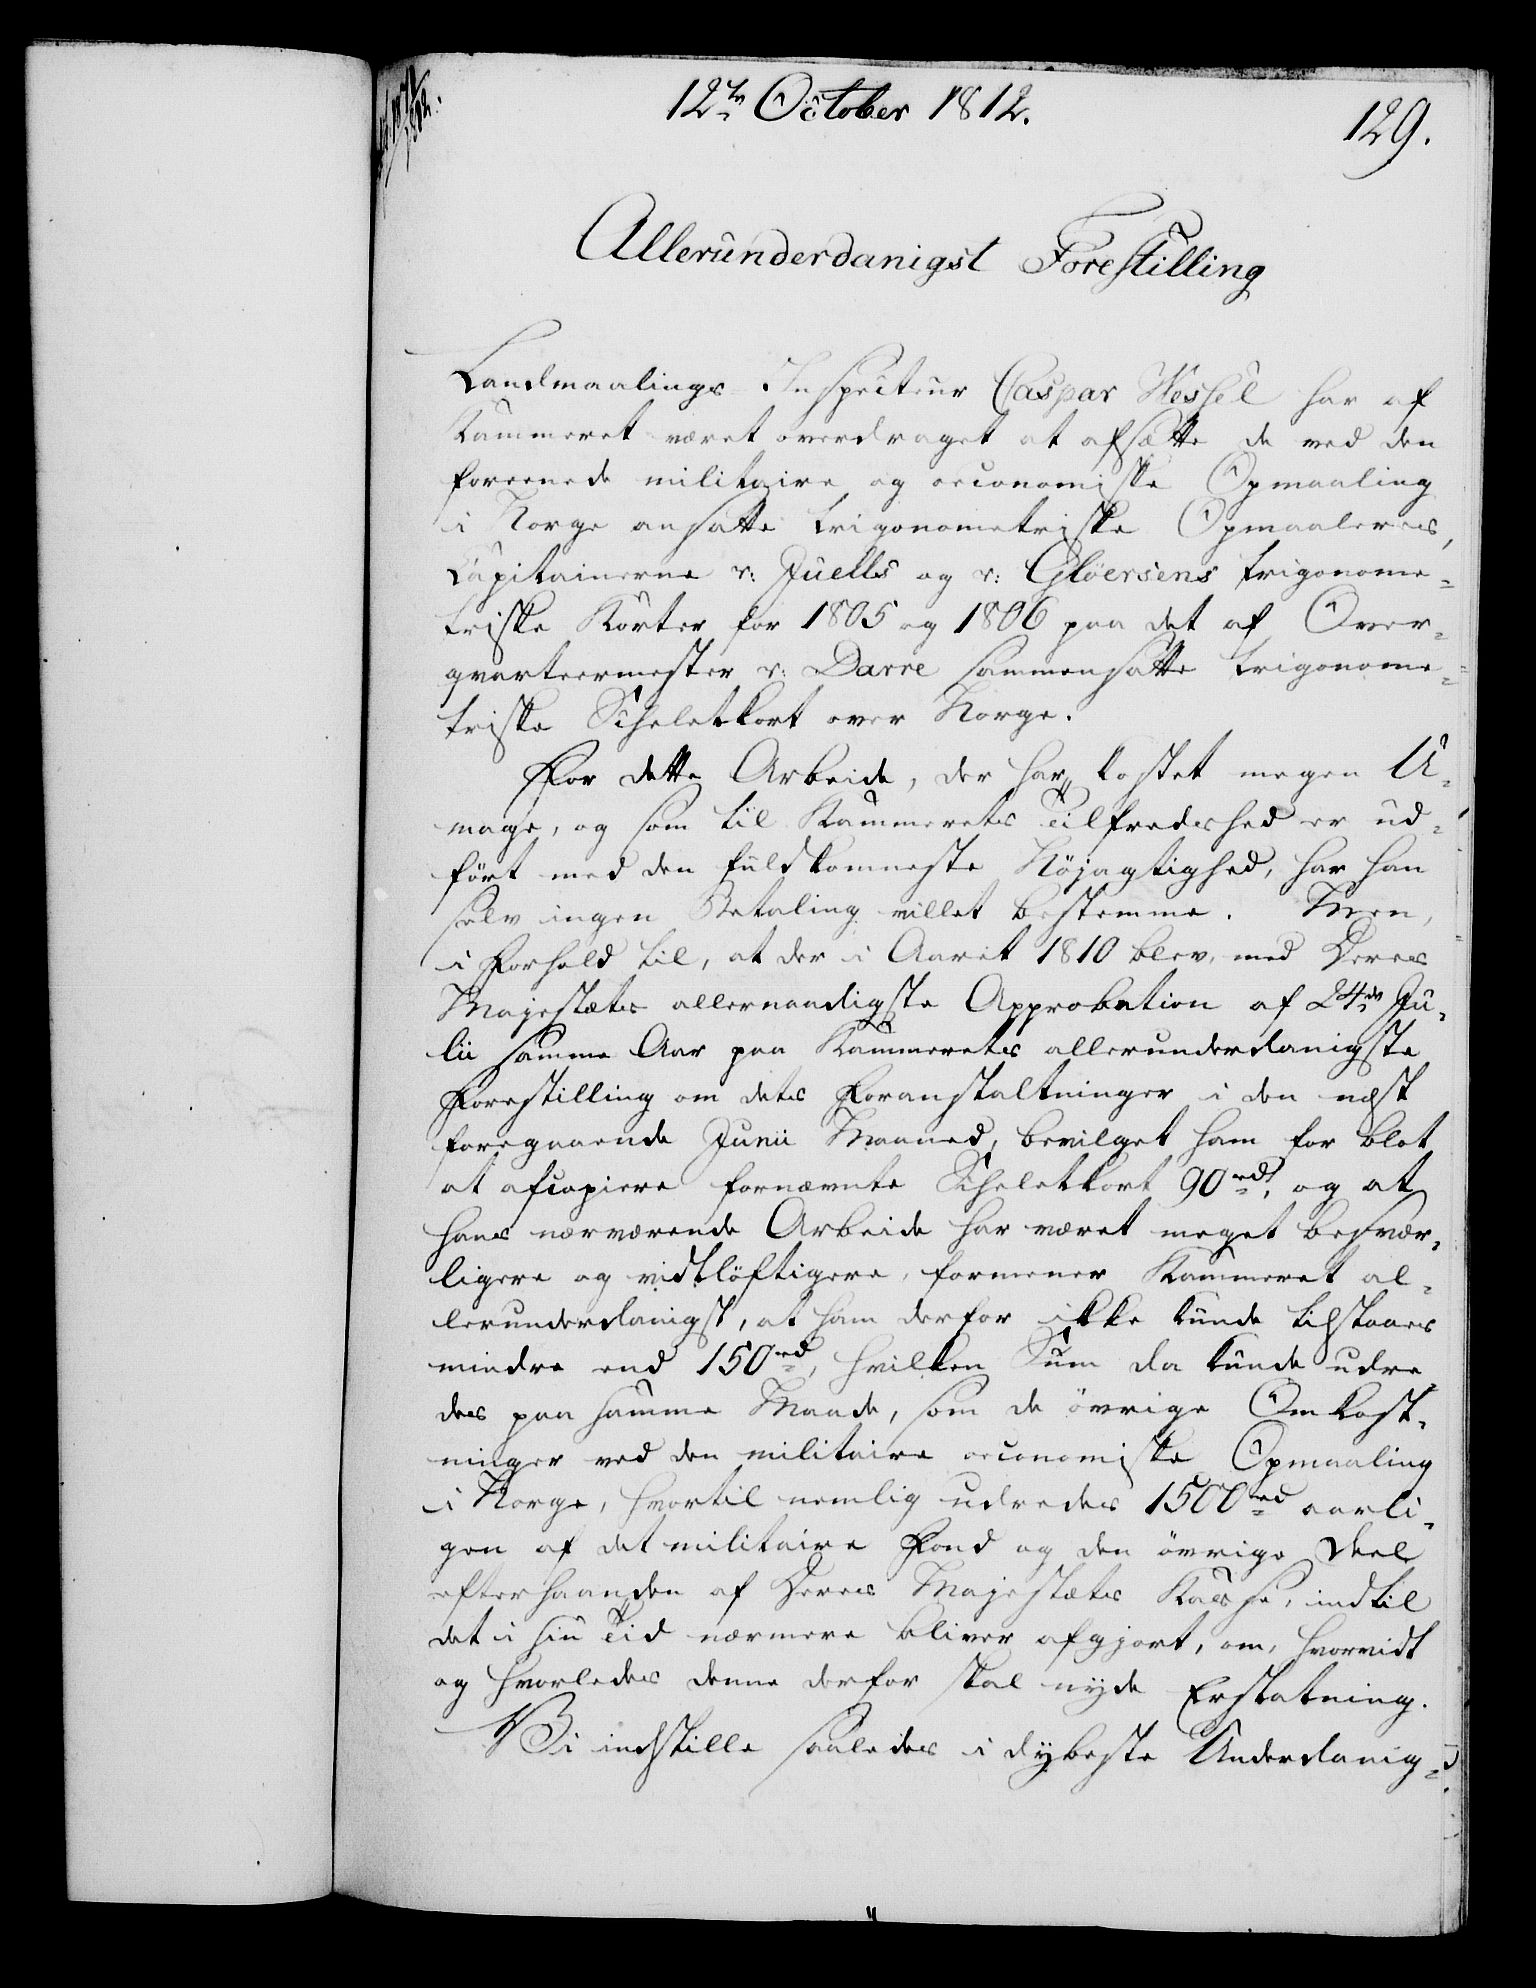 12te October 1812.
129.
Allerunderdanigst Forestilling
Landmaalings Inspecteur Caspar Wessel har af
Kammeret været overdraget at afsætte de ved den
foreenede militaire og oeconomiske Opmaaling
i Norge ansatte trigonometriske Opmaaleres,
Capitainerne v: Juells og v: Glöersens trigonome-
triske Karter for 1805 og 1806 paa det af Over-
qvarteermester v: Darre sammensatte trigonome-
triske Scheletkort over Norge.
For dette Arbeide, der har kostet megen U-
mage, og som til Kammerets Tilfredshed er ud-
fört med den fuldkomneste Nöjagtighed, har han
selv ingen Betaling villet bestemme. Men,
i Forhold til, at der i Aaret 1810 blev, med Deres
Majestæts allernaadigste Approbation af 24de Ju-
lii samme Aar paa Kammerets allerunderdanigste
Forestilling om dets Foranstaltninger i den næst
foregaaende Junii Maaned, bevilget ham for blot
at afcopiere fornævnte Scheletkort 90 rd, og at
hans nærværende Arbeide har været meget besvær-
ligere og vidtlöftigere, formener Kammeret al-
lerunderdanigst, at ham derfor ikke kunde tilstaaes
mindre end 150 rd, hvilken Sum da kunde udre-
des paa samme Maade, som de övrige Omkost-
ninger ved den militaire oeconomiske Opmaaling
i Norge, hvortil nemlig udredes 1500 rd aarli-
gen af det militaire Fond og den övrige Deel
efterhaanden af Deres Majestæts Kasse, indtil
det i sin Tid nærmere bliver afgjort, om, hvorvidt
og hvorledes denne derfor skal nyde Erstatning.
Vi indstille saaledes i dybeste Underdanig-